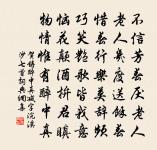 不信芳春厭老人
老人幾度送餘春
惜春行樂莫辭頻
巧笑艷歌皆我意
惱花顛酒拚君瞋
物情惟有醉中真
賀鑄醉中真減字浣溪
沙七首詞典網集